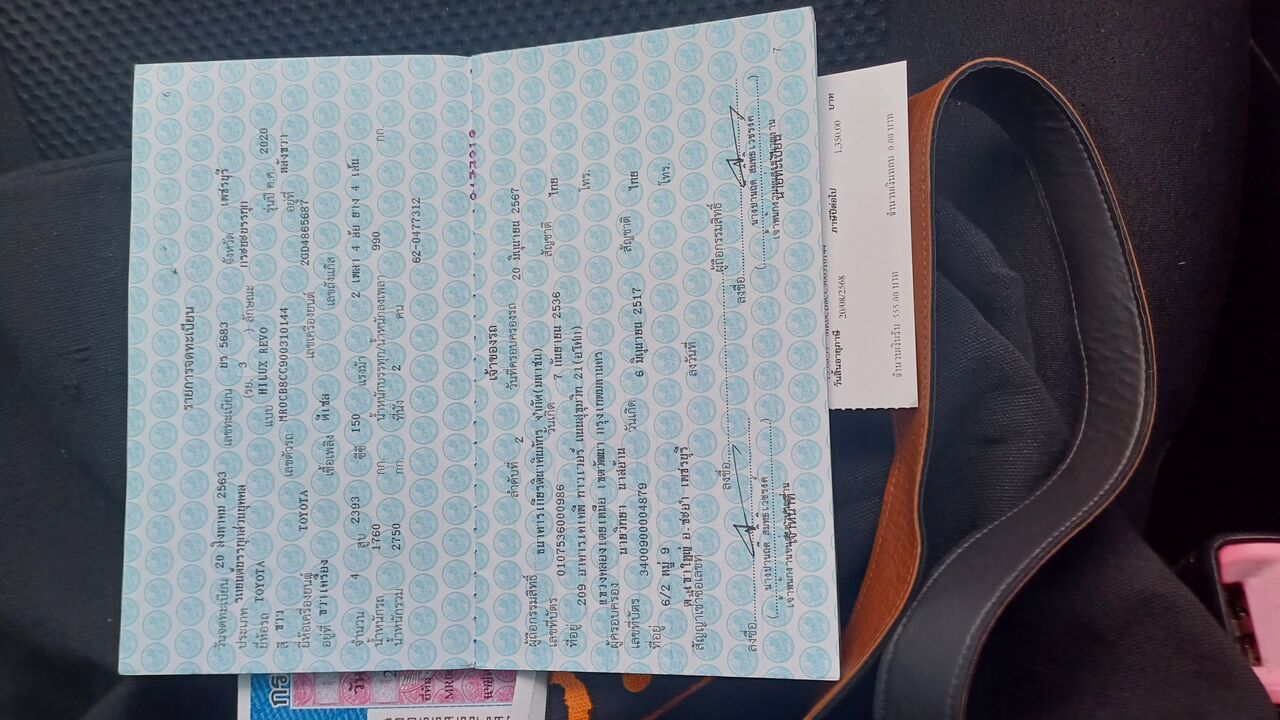 6
รายการจดทะเบียน
วันจดทะเบียน 20 สิงหาคม 2563 เลขทะเบียน ยร 5683 จังหวัด เพชรบุรี
ประเภท รถยนต์บรรทุกส่วนบุคคล (รย. 3 ) ลักษณะ กระบะบรรทุก
ยี่ห้อรถ TOYOTA แบบ HILUX REVO รุ่นปี ค.ศ. 2020
สี ขาว เลขตัวรถ MR0CB8CC900310144 อยู่ที่ หลังขวา
ยี่ห้อเครื่องยนต์ TOYOTA เลขเครื่องยนต์ 2GD4865687
อยู่ที่ ขวาเครื่อง เชื้อเพลิง ดีเซล เลขถังแก๊ส
จำนวน 4 สูบ 2393 ซีซี 150 แรงม้า 2 เพลา 4 ล้อ ยาง 4 เส้น
น้ำหนักรถ 1760 กก. น้ำหนักบรรทุก/น้ำหนักลงเพลา 990 กก.
น้ำหนักรวม 2750 กก. ที่นั่ง 2 คน
62-0477312
เจ้าของรถ
ลำดับที่ 2 วันที่ครอบครองรถ 20 มิถุนายน 2567
ผู้ถือกรรมสิทธิ์ ธนาคารเกียรตินาคินภัทร จำกัด(มหาชน)
เลขที่บัตร 0107536000986 วันเกิด 7 เมษายน 2536 สัญชาติ ไทย
ที่อยู่ 209 อาคารเคเคพี ทาวเวอร์ ถนนสุขุมวิท 21(อโศก) โทร.
แขวงคลองเตยเหนือ เขตวัฒนา กรุงเทพมหานคร
ผู้ครอบครอง นายวิทยา
เลขที่บัตร 3400900004879 วันเกิด 6 มิถุนายน 2517 สัญชาติ ไทย
ที่อยู่ 6/2 หมู่ 9 โทร.
ต.เขาใหญ่ อ.ชะอำ เพชรบุรี
สัญญาเช่าซื้อเลขที่ ลงวันที่ ผู้ถือกรรมสิทธิ์
ลงชื่อ ลงชื่อ ลงชื่อ
เจ้าหน้าที่ นายทะเบียน
7
วันสิ้นอายุภาษี 20/08/2568 ภาษีปีต่อไป 1,350.00 บาท
จำนวนเงินรับ 555.00 บาท จำนวนเงินทอน 0.00 บาท